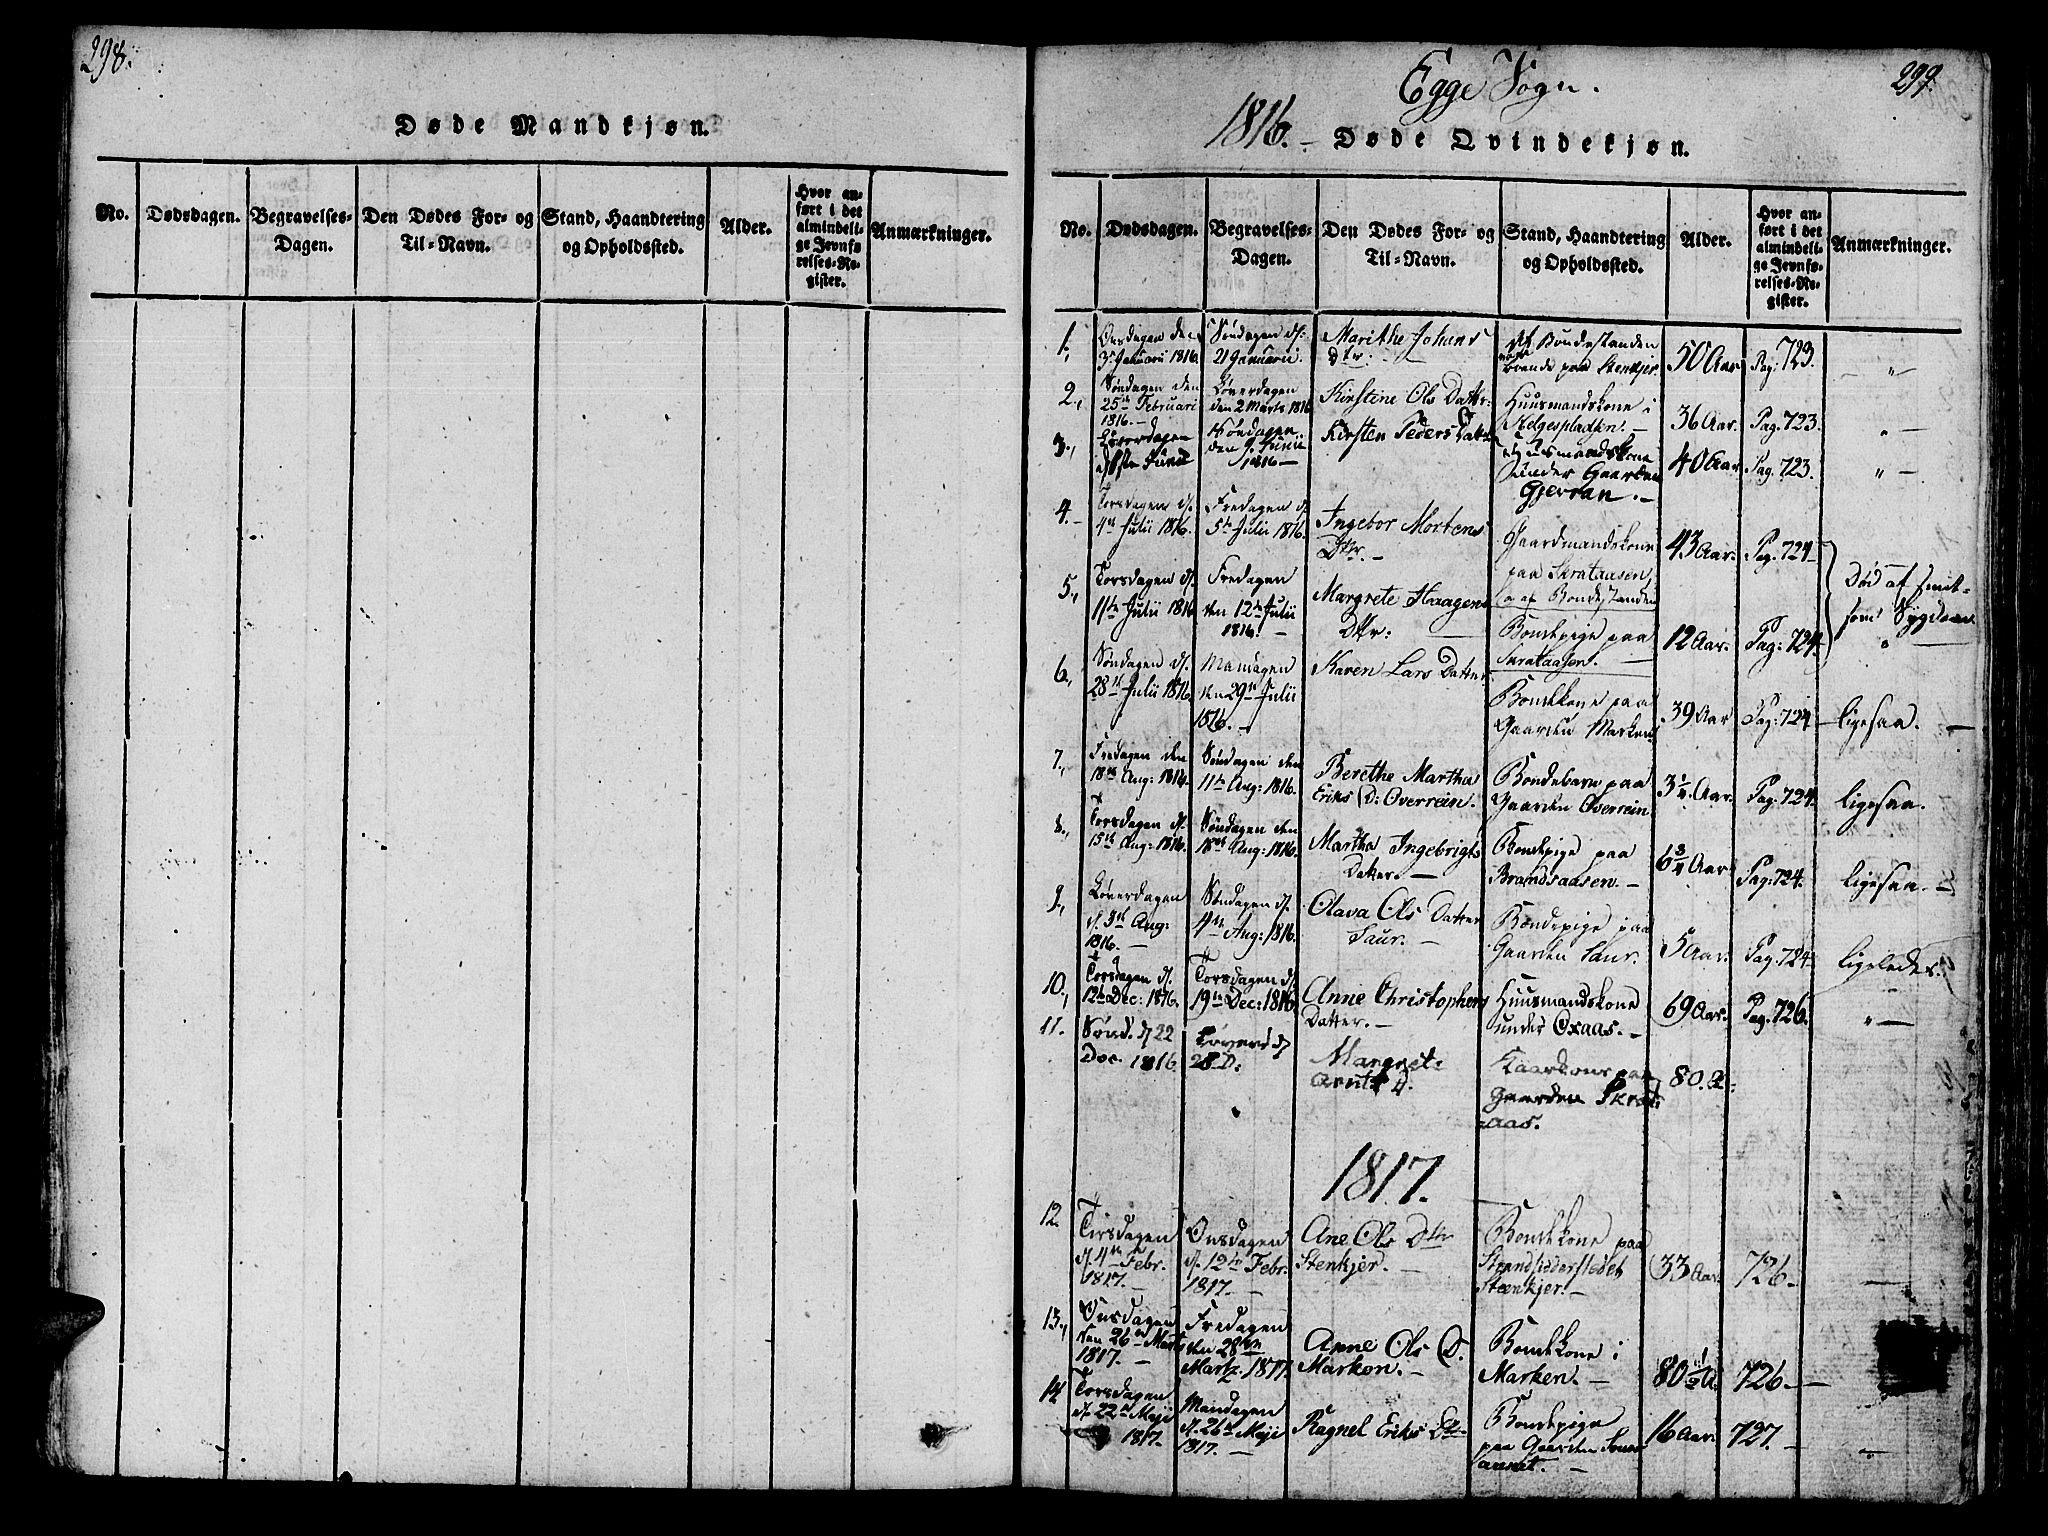 298.
Døde Mandkjøn.
No.
Dødsdagen.
Begravelses-
Dagen.
Den Dødes For- og
Til-Navn.
Stand, Haandtering
og Opholdssted.
Alder.
Hvor an-
ført i det
almindeli-
ge Jevnfø
relses-Re-
gister.
Anmærkninger.
Egge Sogn.
299.
1816. – Døde Qvindekjøn.
No.
Dødsdagen.
Begravelses-
Dagen.
Den Dødes For- og
Til-Navn.
Stand, Haandtering
og Opholdssted.
Alder.
Hvor an-
ført i det
almindeli-
ge Jevnfø-
relses-Re-
gister.
Anmærkninger.
1.,
Onsdagen den
3die Januarii 1816.
Søndagen d:
21 Januarii.
Marithe Johans
Dtr.
Af Bondestanden
boende paa Stenkjer.
50 Aar
Pag: 723.
– „ –
2.,
Søndagen den
25de Februari
1816. –
Løverdagen
den 2 Marts 1816
Kirstine Ols Datter:
Huusmandskone i
Helgespladsen. –
36 Aar.
Pag. 723.
„ –
3.,
Løverdagen
Junii
Søndagen
den 9. Junii
1816 –
Kirsten Peders Datt
Huusmandskone
under Gaarden
Gjevran. –
40 Aar
Pag. 723.
„ –
4. –
Torsdagen d.
4de Julii 1816.
Fredagen d.
5te Julii 1816.
Ingebor Mortens
Dtr. –
Gaardmandskone
paa Skrataasen,
og af Bondestanden
43 Aar.
Pag. 724
Død af smit-
som Sygdom
„ –
5.,
Torsdagen d.
11te Julii 1816
Fredagen
den 12te Julii
1816. –
Margrete Haagens
Dtr: –
Bondepige paa
Skrataasen. –
12 Aar.
Pag: 724.
6.,
Søndagen d.
28de Julii 1816
Mandagen
den 29de Julii
1816. –
Karen Lars Datter
Bondekone paa
Gaarden Marken
39 Aar
Pag: 724 –
ligesaa. –
7.,
Fredagen den
Aug: 1816.
Søndagen den
11te Aug: 1816.
Berethe Martha
Eriks D: Overrein.
Bondebarn paa
Gaarden Overrein
3 1/4 Aar.
Pag: 724.
ligesaa.
8.,
Torsdagen d.
15de Aug: 1816.
Søndagen den
18de Aug: 1816.
Martha Ingebrigts
Datter. –
Bondepige paa
Brandsaasen. –
6 3/4 Aar
Pag: 724.
ligesaa. –
9.,
Løverdagen
d. 3die Aug:
1816. –
Søndagen d.
4de Aug: 1816.
Olava Ols Datter
Saur. –
Bondepige paa
Gaarden Saur.
5 Aar.
Pag: 724
ligeledes.
–
10.,
Torsdagen d.
12te Dec: 1816.
Torsdagen d.
19de Dec: 1816.
Anne Christophers
Datter. –
Huusmandskone
under Oxaas. –
69 Aar.
Pag. 726.
„ –
11.
Sønd. d 22
Dec. 1816
Løverd d
28 D:
Margrete
Arnts D.
Kaarkone paa
Gaarden Skrat-
aas.
80. A:
1817.
12.
Tirsdagen
d. 4de Febr.
1817. –
Onsdagen
d. 12te Febr.
1817. –
Ane Ols Dtr
Stenkjer. –
Bondekone paa
Strandsidderstedet
Steenkjer. –
33 Aar.
726 –
–
13.,
Onsdagen
den 26de Marts
1817. –
Fredagen
den 28de
Marts. 1817.
Anne Ols D.
Marken. –
Bondekone i
Marken. –
80 1/2 A.
726. –
14.
Torsdagen
d. 22de Maji
1817. –
Mandagen
d. 26de Maji
1817. –
Ragnel Eriks Dtr
Bondepige
paa Gaarden
16 Aar.
727. –
–